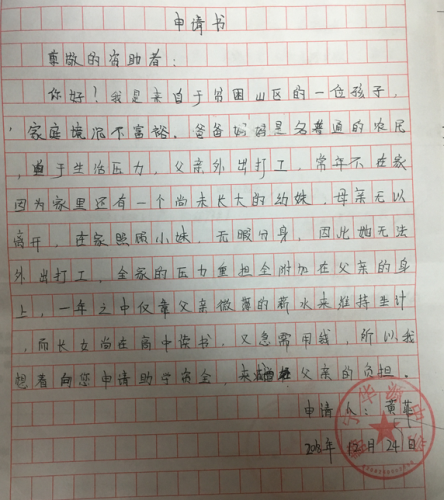 申请书
尊敬的资助者：
你好！我是来自于贫困山区的一位孩子，
家庭境况不富裕。爸爸妈妈是名普通的农民
，迫于生活压力，父亲外出打工，常年不在家
因为家里还有一个尚未长大的幼妹，母亲无以
离开，在家照顾小妹，无暇分身，因此她无法
外出打工，全家的压力重担全附加在父亲的身
上，一年之中仅靠父亲微薄的薪水来维持生计
，而长女尚在高中读书，又急需用钱，所以我
想着向您申请助学资金，来减轻父亲的负担。
申请人：黄
12月24日